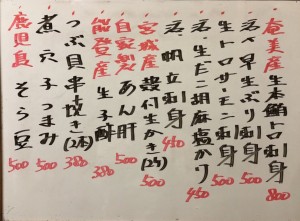 奄美産生本鮪トロ刺身 800
活〆早生ぶり刺身 500
生トロサーモン刺身 500
活生だこ胡麻塩かり 450
活帆立刺身 450
宮城産殻付生かき(2ケ) 500
自家製あん肝 500
能登産生子酢 380
つぶ貝串焼き(2本) 380
煮穴子つまみ 500
鹿児島そら豆 500